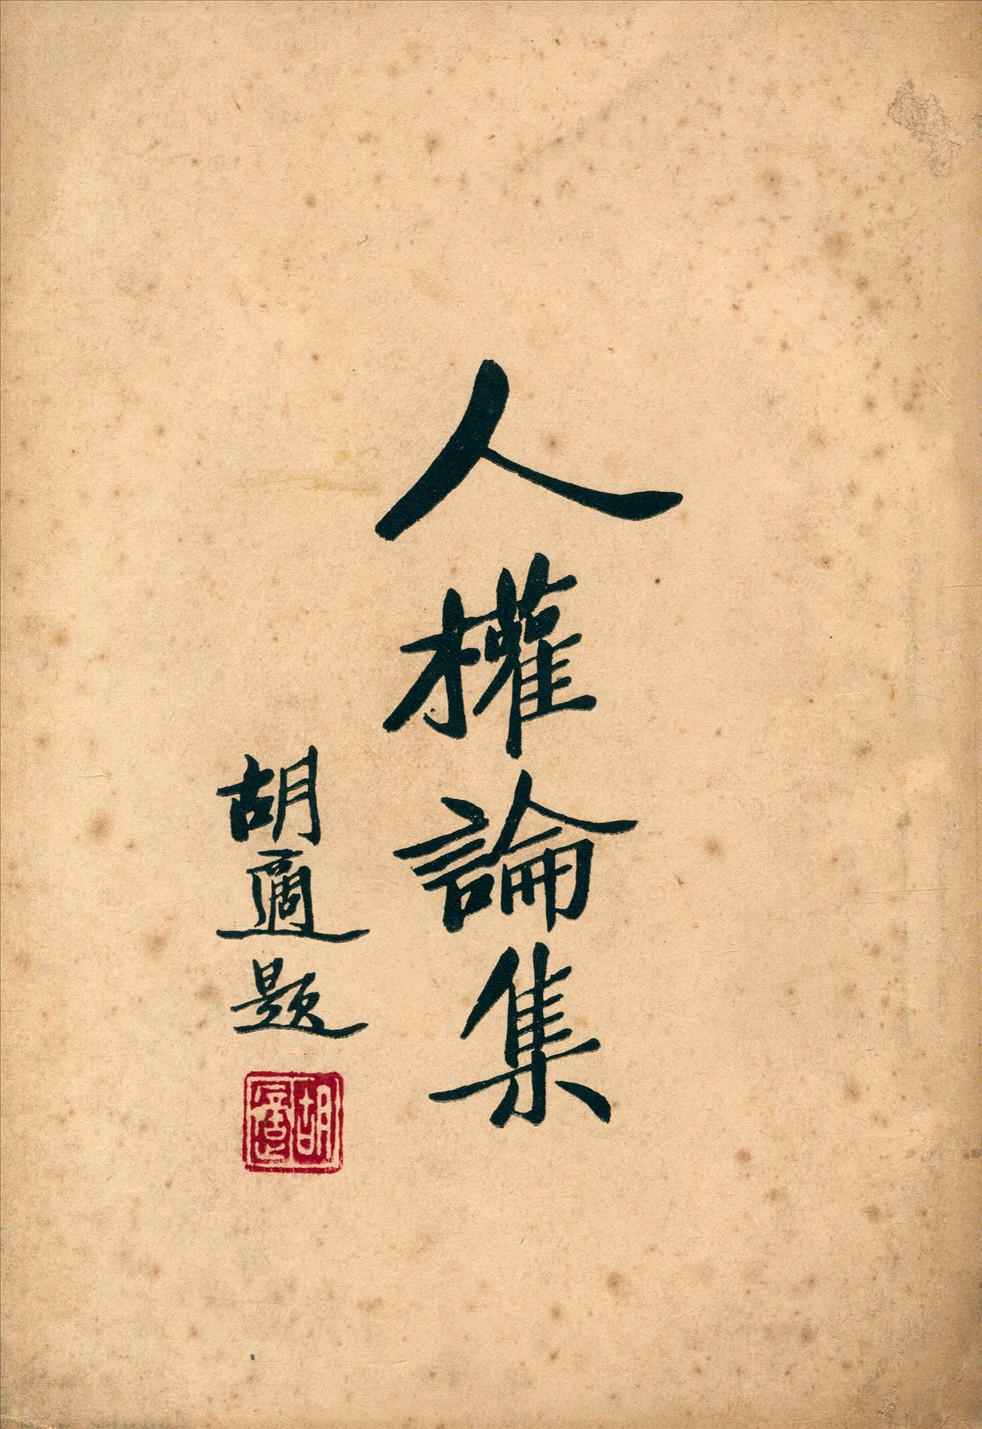 人權論集
胡適題
胡適